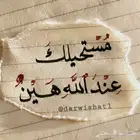 مُسْتَحيلك
عِندَ اللَّه هَيّنٌ
@darwishat1